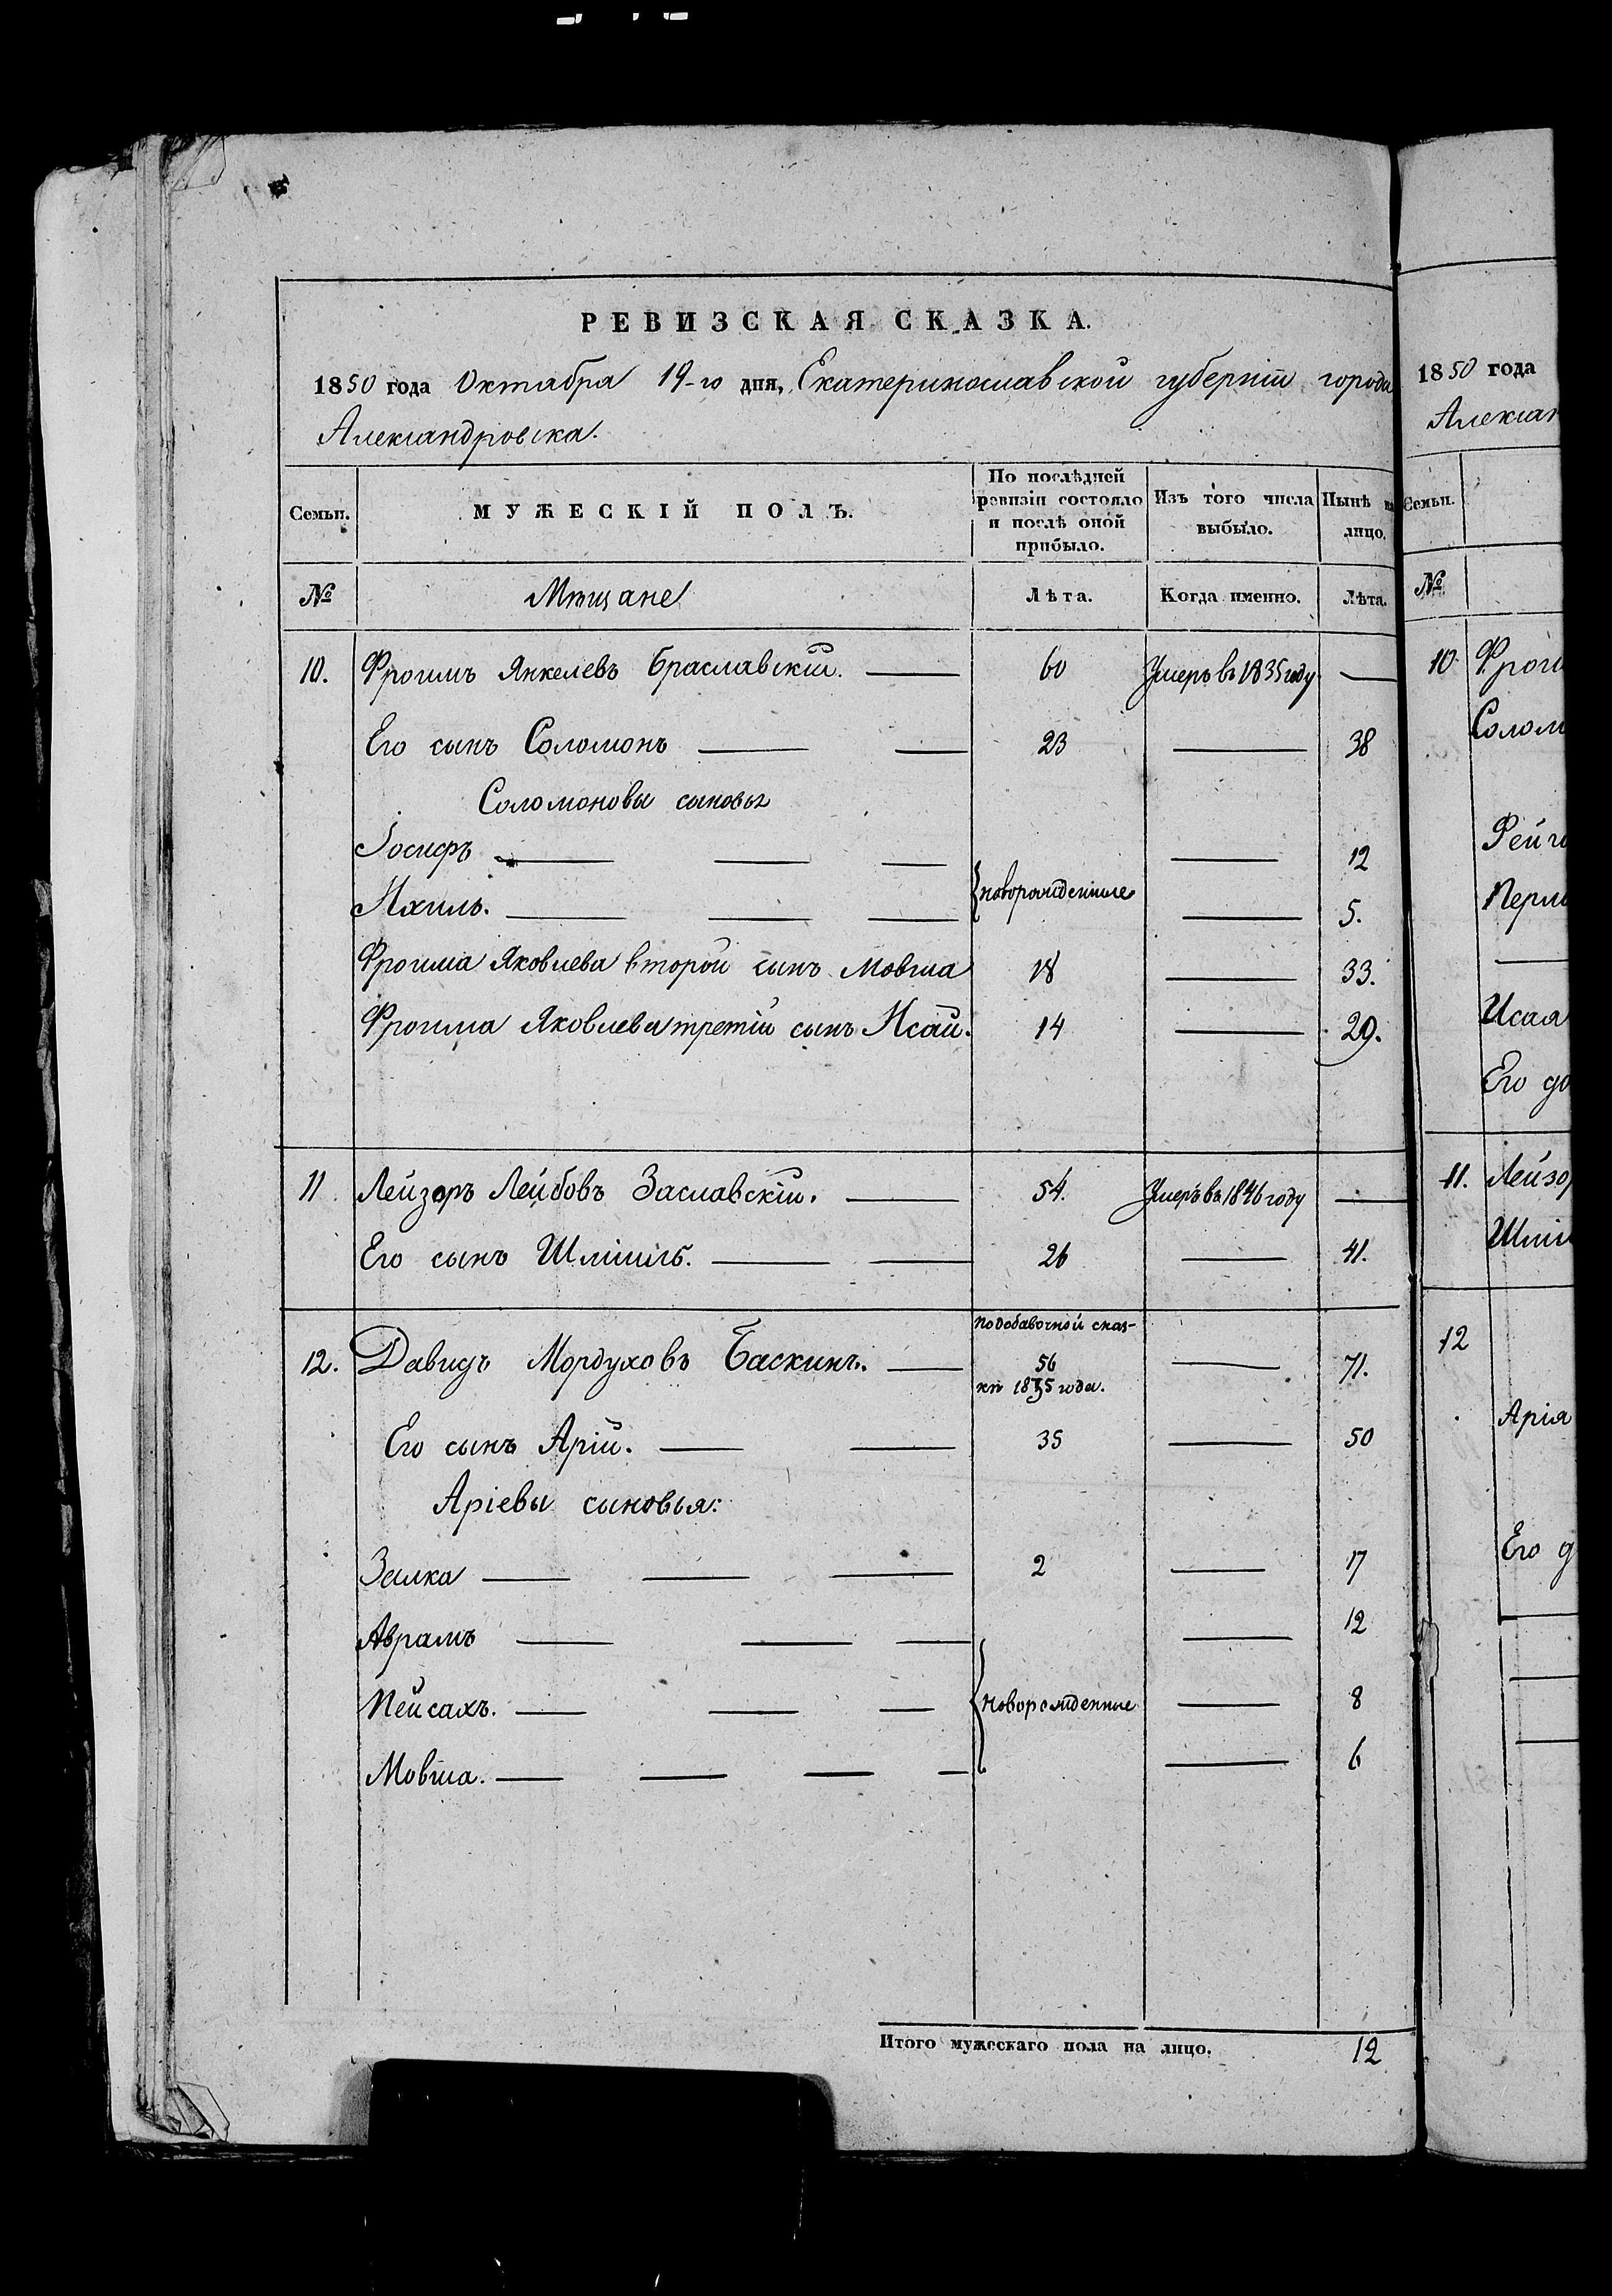 РЕВИЗСКАЯ СКАЗКА.
1850 года Октября 19-го дня, Екатеринославской губерніи города
Александровска.
Семьи.
МУЖЕСКІЙ ПОЛЪ.
По послѣдней ревизіи состояло и послѣ оной прибыло.
Изъ того числа выбыло.
Нынѣ на лицо.
№
Мѣщане
Лѣта.
Когда именно.
Лѣта.
10. Фроимъ Янкелевъ Браславскій. 60 Умеръ въ 1835 году
Его сынъ Соломонъ 23 38
Соломоновы сыновья
Іосифъ 12
новорожденные
Ихиль. 5.
Фроима Яковлева второй сынъ Мовша 18 33.
Фроима Яковлева третій сынъ Исай. 14 29.
11. Лейзоръ Лейбовъ Заславскій. 54. Умеръ въ 1846 году
Его сынъ Шліомъ. 26 41.
по добавочной сказ-
12. Давидъ Мордуховъ Баскинъ. 56 71.
кѣ 1835 года.
Его сынъ Арій. 35 50
Аріевы сыновья:
Зелка 2 17
Аврамъ 12
Пейсахъ. новорожденные 8
Мовша. 6
Итого мужескаго пола на лицо. 12
1850 года
Алексан
Семьи.
№
10. Фрои
Солом
Фейг
Перл
Исая
Его до
11. Лейзо
Шлі
12
Арія
Его д